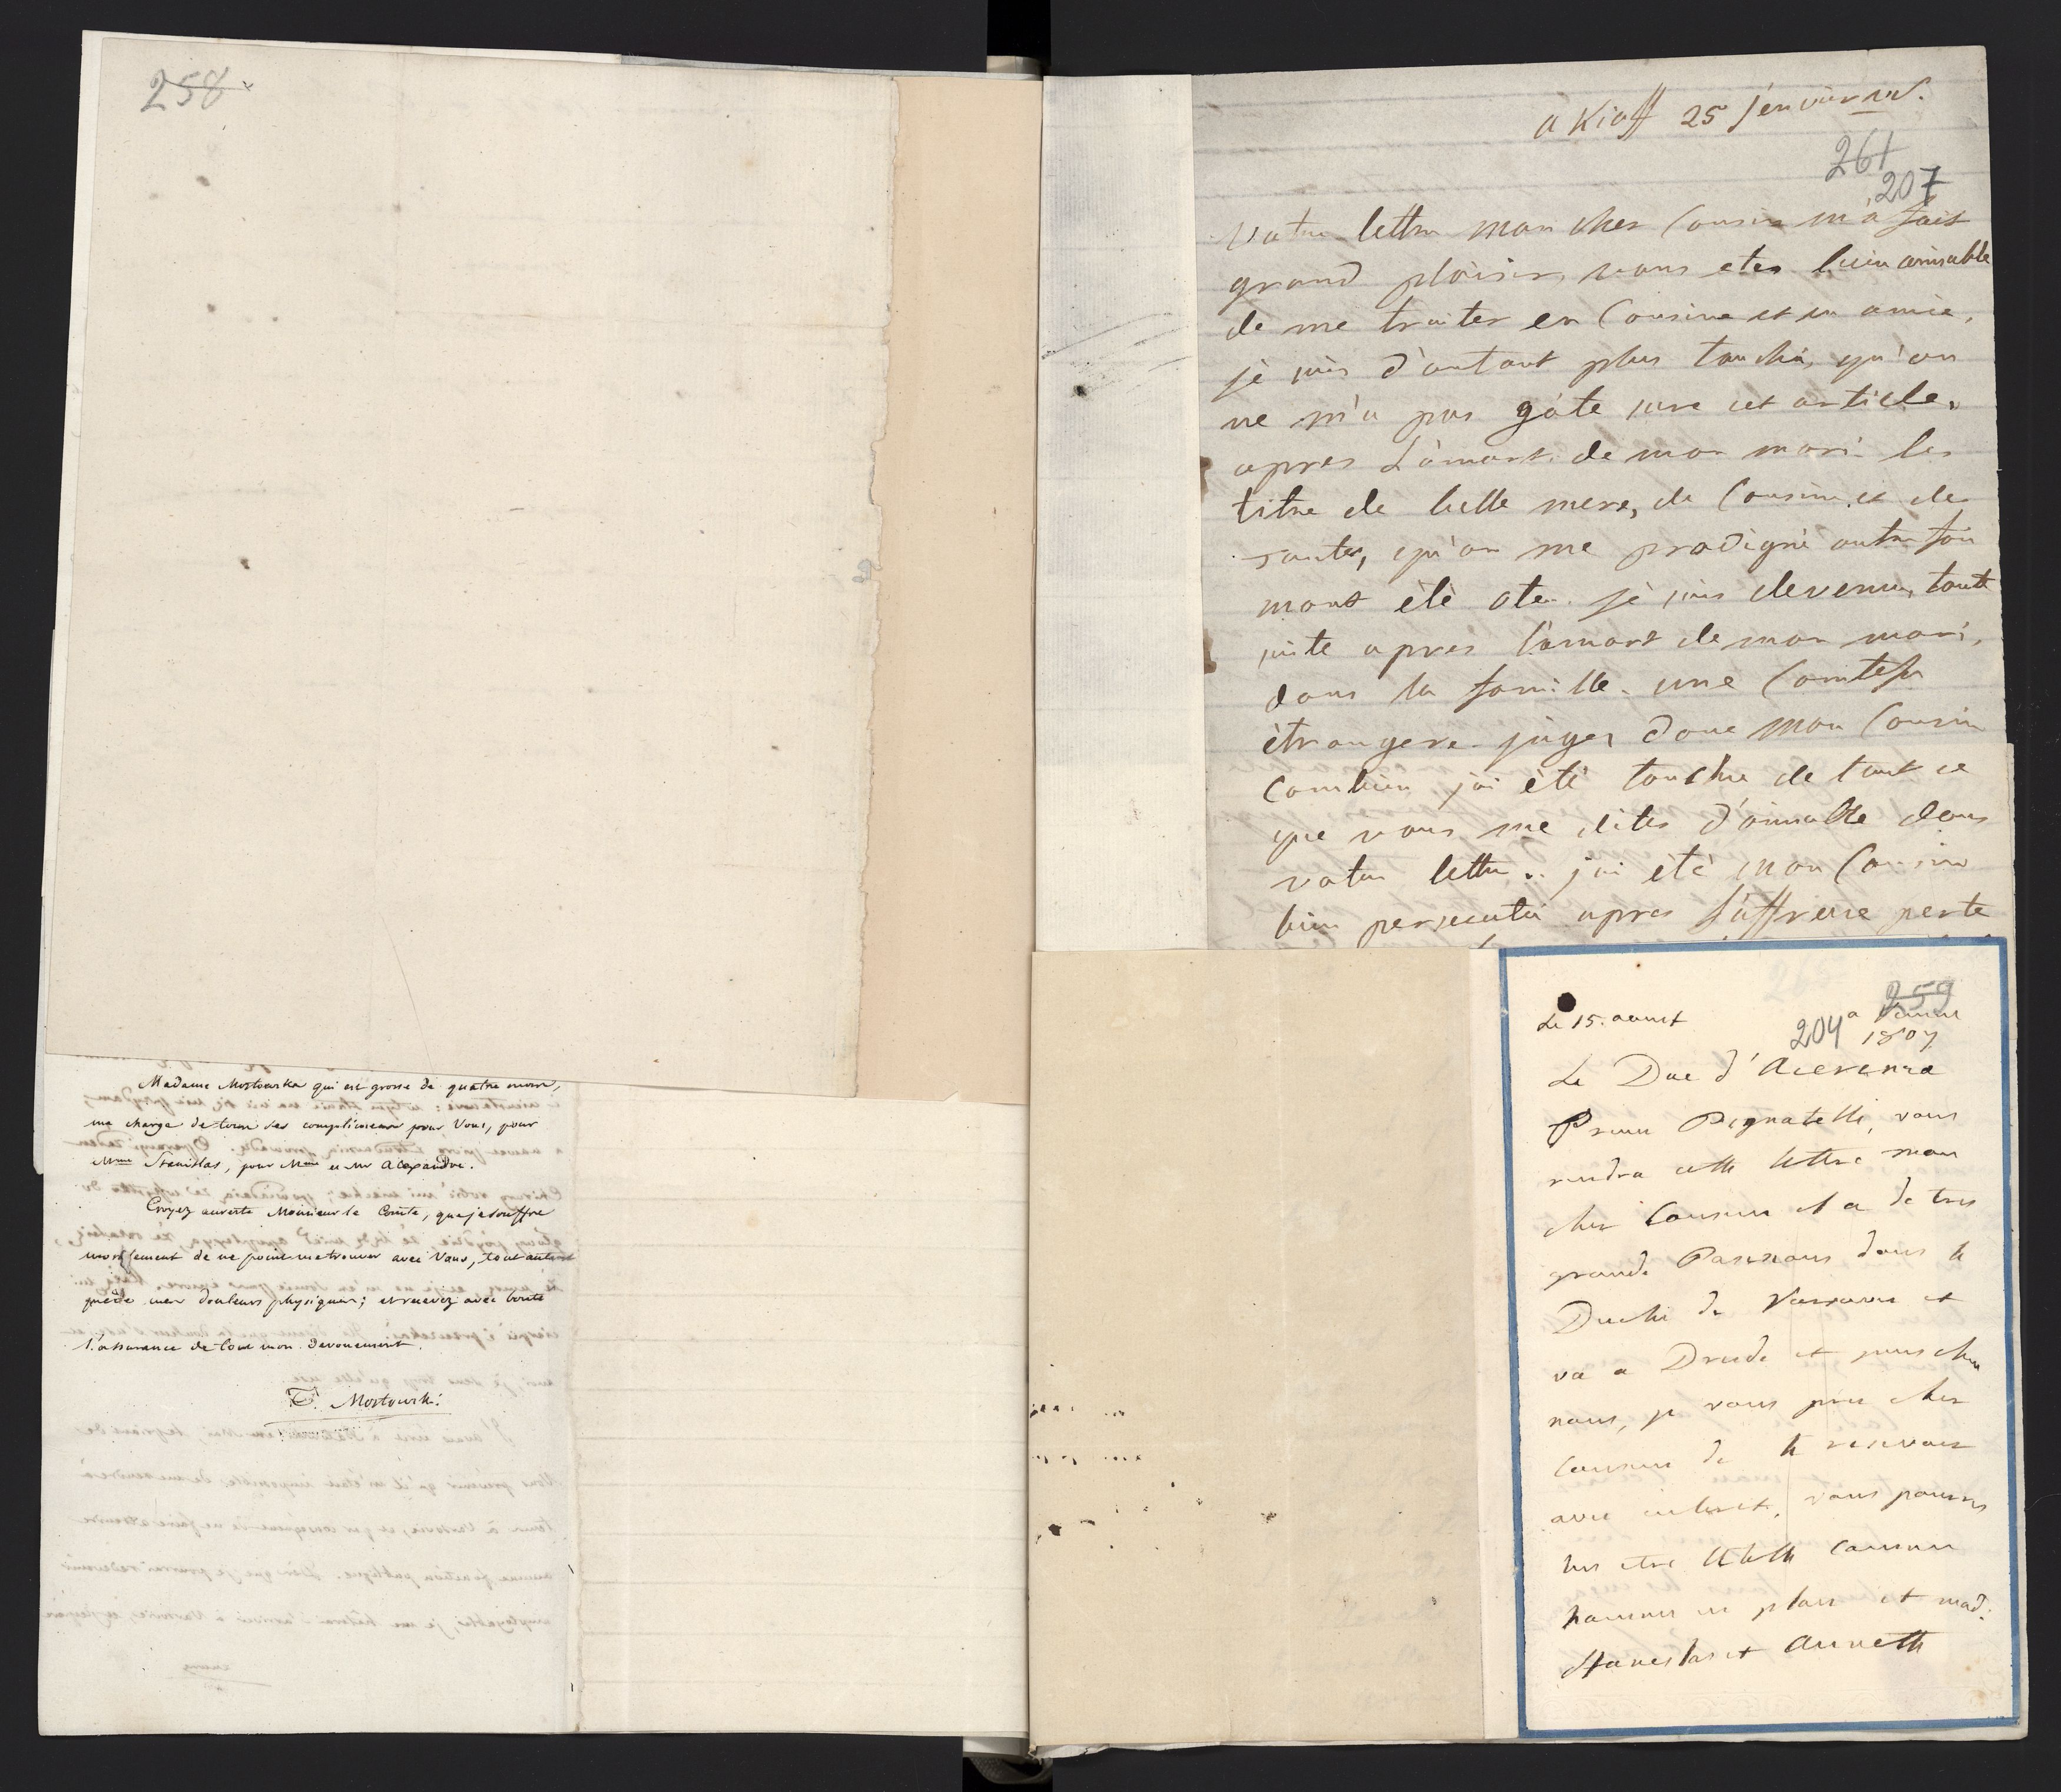 258
Madame Mostowska qui est grosse de quatre mois,
me charge de tous ses complimens pour Vous, pour
Mme Stanislas, pour Mme et Mr Alexandre.
Croyez au reste Monsieur le Comte, que je souffre
moralement de ne point me trouver avec Vous, tout autant
que de mes douleurs physiques; et recevez avec bonté
l'assurance de tout mon dévouement.
T. Mostowski
a Kioff 25 jenvier
261
207
Votre lettre mon cher Cousin m'a fait
grand plaisir, vous etes bien aimable
de me traiter en Cousine et en amie,
je suis d'autant plus touché, qu'on
ne m'a pas gâte sure cet article,
apres la mort de mon mari les
titre de belle mere, de Cousine et de
tante, qu'on me prodigué autre fois
mont été ote. je suis devenue, toute
suite apres la mort de mon mari,
dans la famille une Comtesse
étrangere jugez donc mon Cousin
Combien j'ai été touchée de tout ce
que vous me dites d'aimable dans
votre lettre. j'ai été mon Cousin
bien persecuté apres l'affreuse perte
259
204
Le 15. aoust a Vienne
1807
Le Duc d'Acerenza
Prince Pignatelli, vous
rendra cette lettre mon
cher Cousin il a de tres
grande Possessions dans le
Duché de Varsovie et
va a Dresde et puis chez
vous, je vous prie cher
Cousin de le recevoir
avec interet, vous pourres
lui etre utile
et mad:
Stanislas et Annette